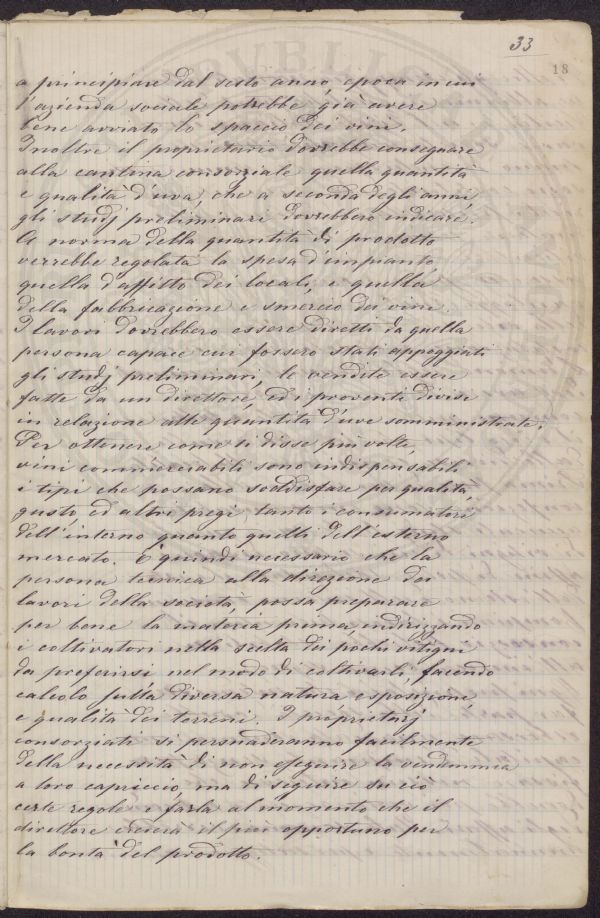 33
18
a principiare dal sesto anno, epoca in cui
l'azienda sociale potrebbe già avere
bene avviato lo spaccio dei vini.
Inoltre il proprietario dovrebbe consegnare
alla cantina consorziale quella quantità
e qualità d'uva, che a seconda degli anni,
gli studj preliminari dovrebbero indicare.
A norma della quantità di prodotto
verrebbe regolata la spesa d'impianto,
quella d'affitto dei locali, e quella
della fabbricazione e smercio dei vini.
I lavori dovrebbero essere diretti da quella
persona capace cui fossero stati appoggiati
gli studj preliminari, le vendite essere
fatte da un direttore, ed i proventi divisi
in relazione alle quantità d'uve somministrate.
Per ottenere come si disse più volte,
vini commerciabili sono indispensabili
i tipi che possano soddisfare per qualità,
gusto ed altri pregi, tanto i consumatori
dell'interno quanto quelli dell'esterno
mercato. È quindi necessario che la
persona tecnica alla direzione dei
lavori della società, possa preparare
per bene la materia prima, indirizzando
i coltivatori nella scelta dei pochi vitigni
da preferirsi nel modo di coltivarli, facendo
calcolo sulla diversa natura esposizione,
e qualità dei terreni. I proprietarj
consorziati si persuaderanno facilmente
della necessità di non eseguire la vendemmia
a loro capriccio, ma di seguire su ciò
certe regole e farla al momento che il
direttore crederà il più opportuno per
la bontà del prodotto.